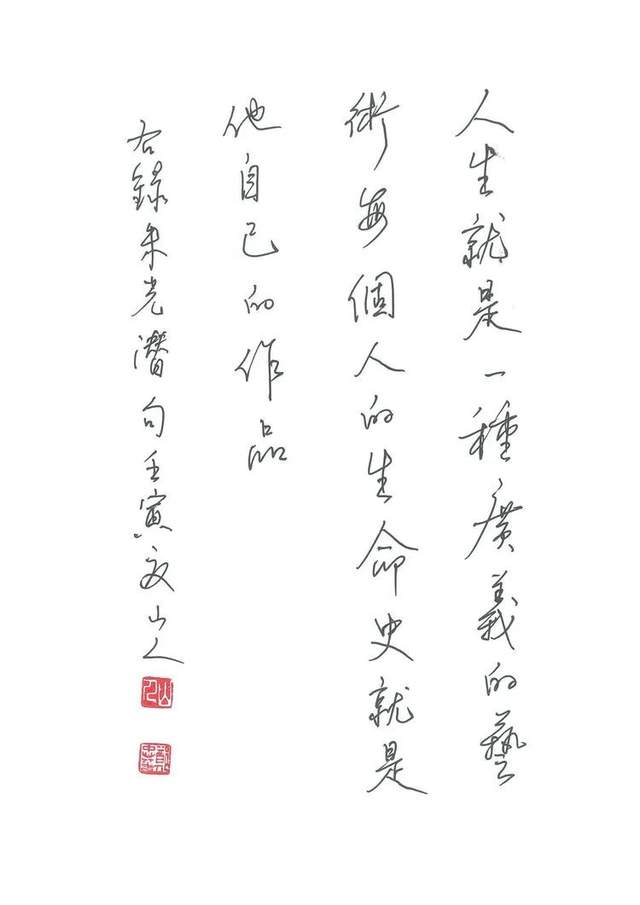 人生就是一種廣義的藝
術每個人的生命史就是
他自己的作品
右錄朱光潛句壬寅夏山人
山人